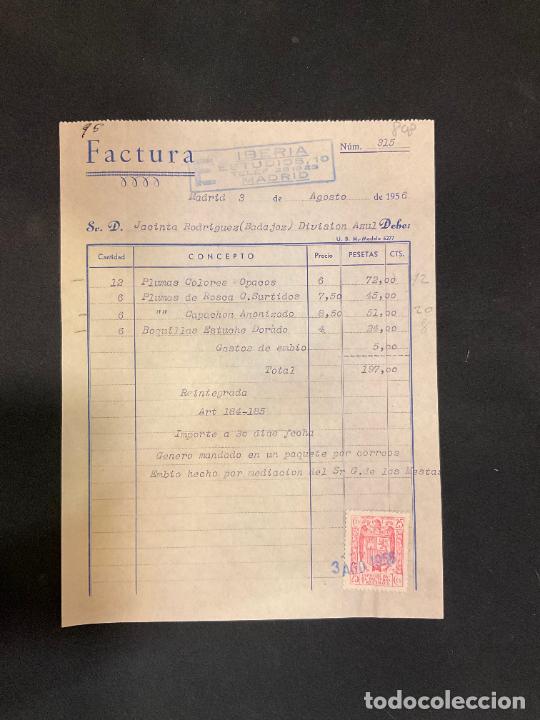 95
898
Factura
IBERIA
ESTUDIOS, 10
MADRID
Núm. 315
Madrid 3 de Agosto de 1956
Sr. D. Jacinta Rodriguez(Badajoz) Division Azul Debe:
U. S. M.-Modelo 6277
Cantidad CONCEPTO Precio PESETAS CTS.
12 Plumas Colores Opacos 6 72,00 12
6 Plumas de Rosca C.Surtidos 7,50 45,00
6 "" Capuchon Anonizado 8,50 51,00 20
6 Boquillas Estuche Dorado 4 24,00 8
Gastos de embio 5,00
Total 197,00
Reintegrada
Art 184-185
Importe a 30 dias fecha
Genero mandado en un paquete por correos
Embio hecho por mediacion del Sr G.de las Mestas
25 Cts
3 AGO. 1956
25 Cts
todocoleccion
todocoleccion.net